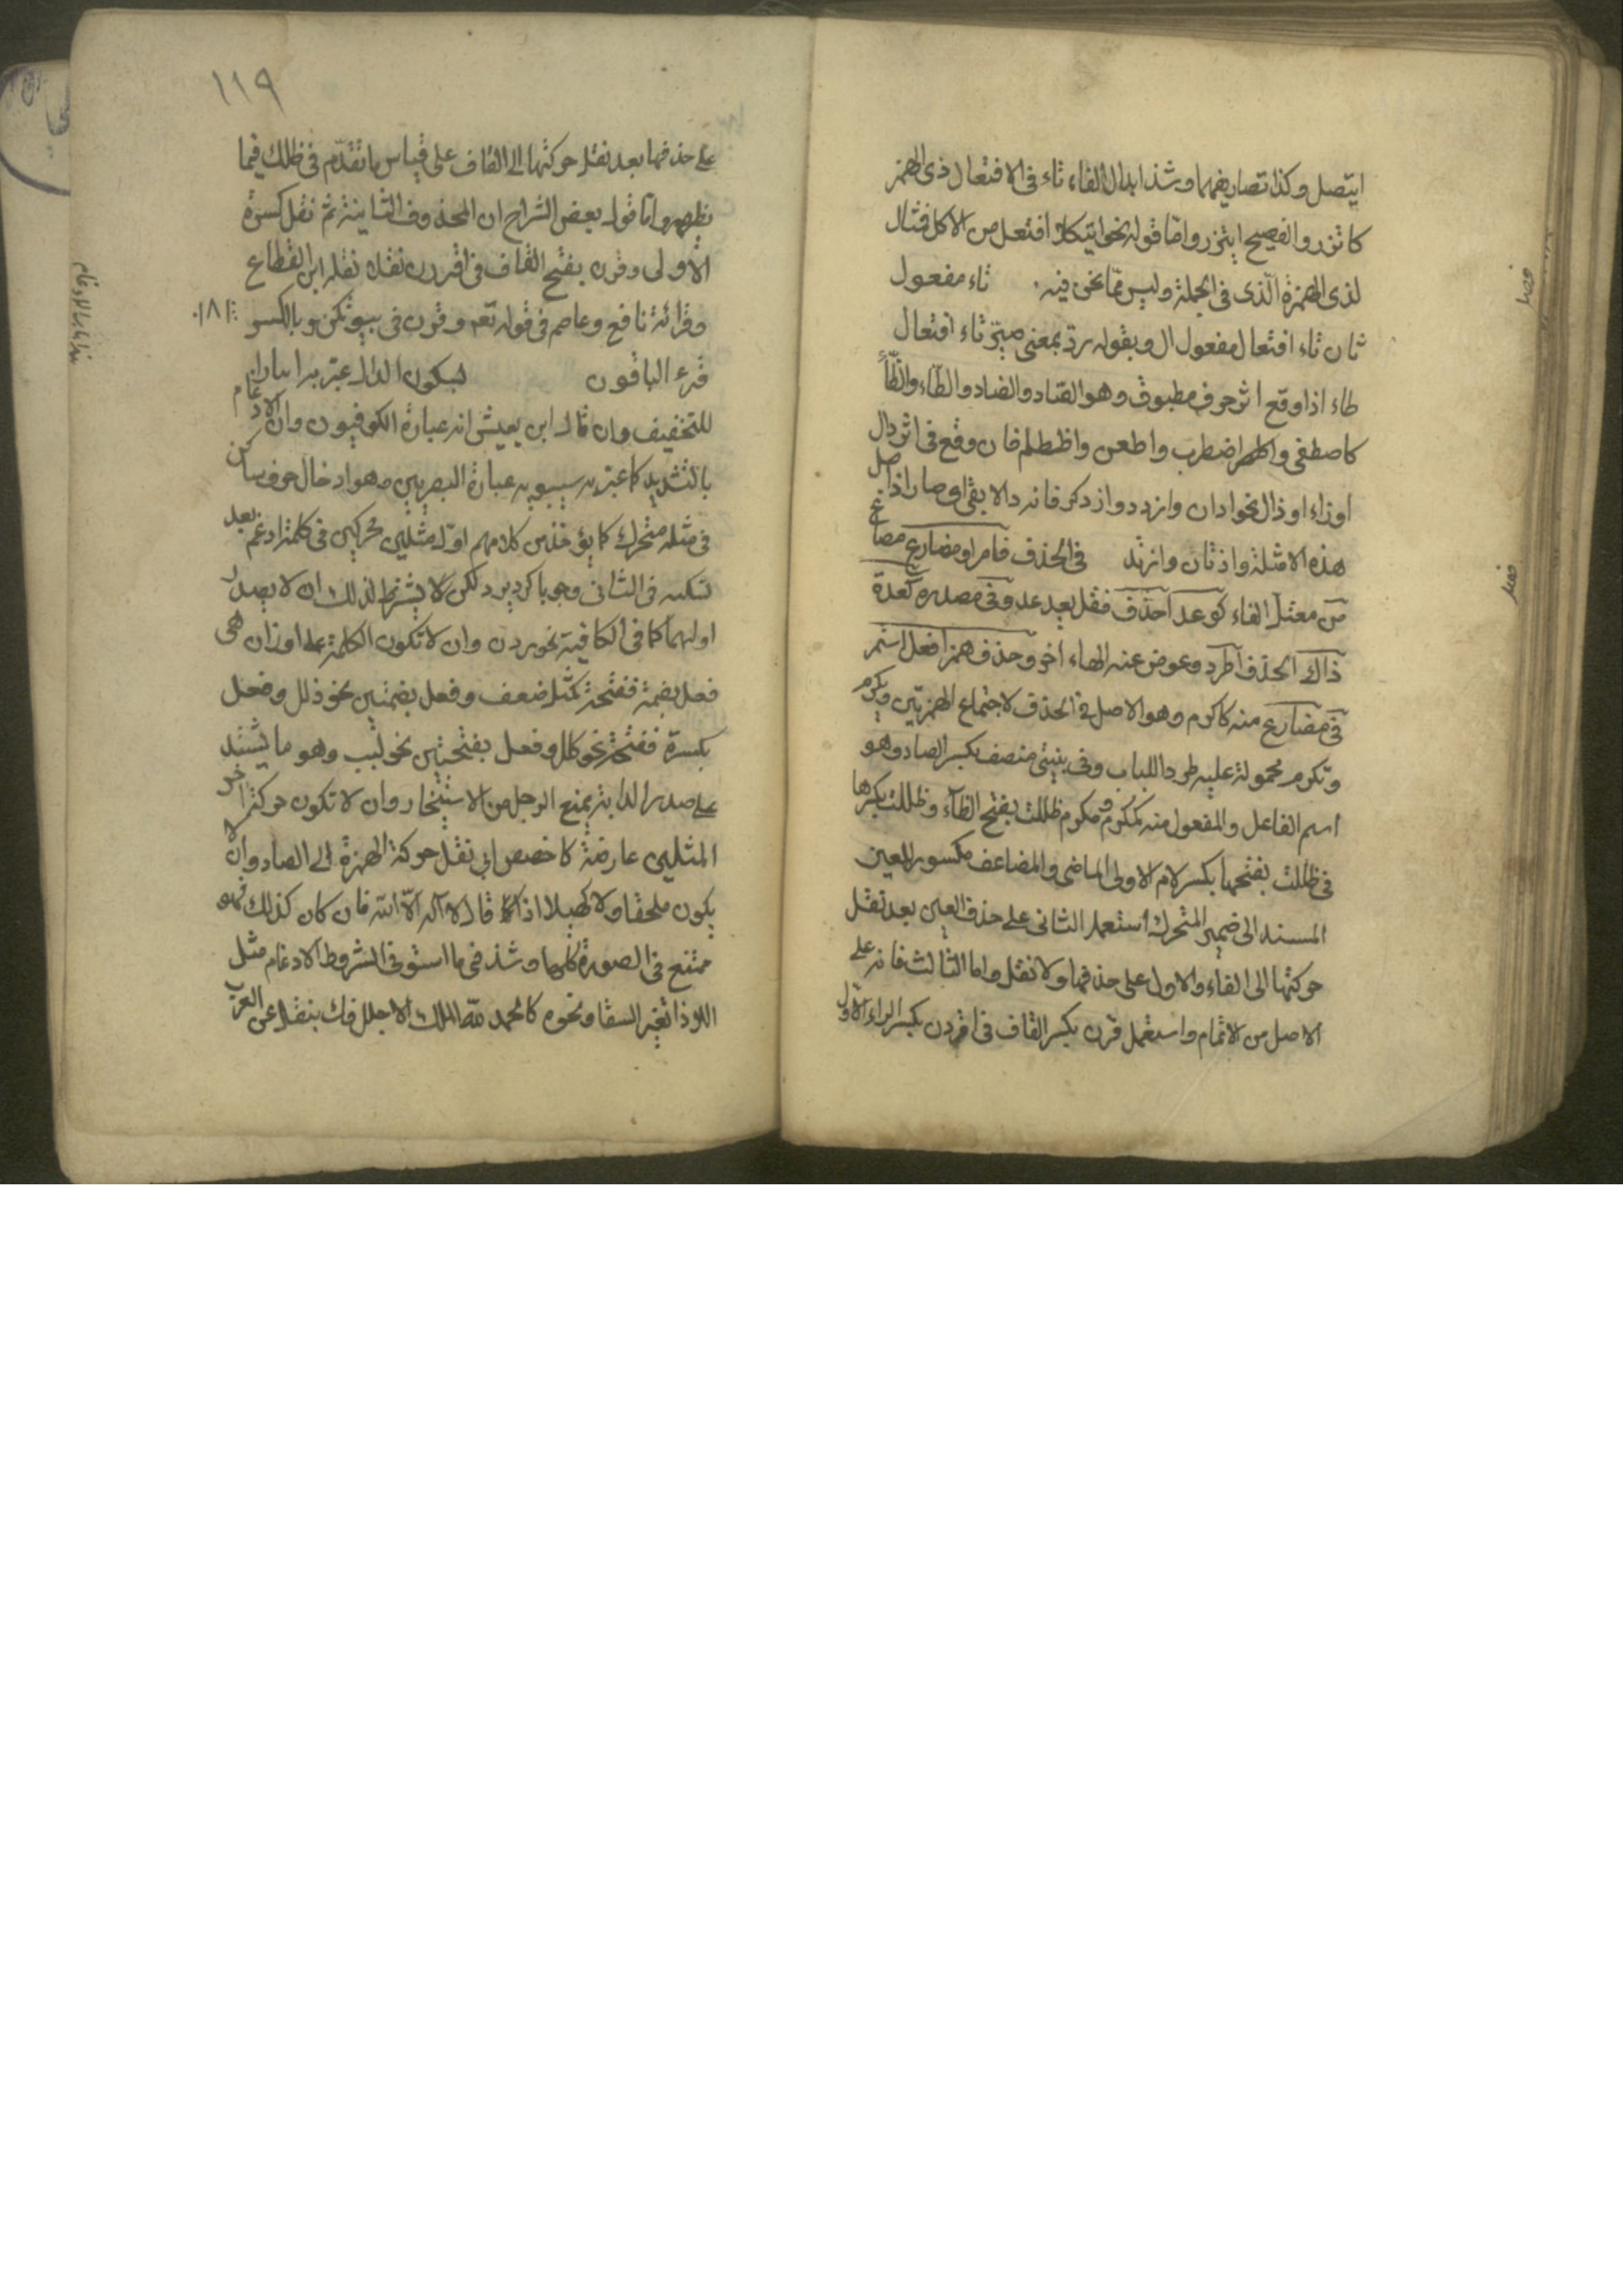 ايتصل وكذا تصاريفهما وشذ ابدال الفاء تاء فى الافتعال ذى الهمز
كاتزر والفصيح ايتزر واما قوله نحو ايتكل افتعل من الاكل فتال
لذى الهمزة الذى فى الجملة وليس مما نحن فيه. تاء مفعول
ثان تاء افتعال مفعول ال وبقوله رد بمعنى صير تاء افتعال
طاء اذا وقع اثر حرف مطبوق وهو الصاد والضاد والطاء والظاء
كاصطفى واطهر اضطرب واطعن واظطلم فان وقع فى اثر دال
او زاء او ذال نحو ادان وازدد واذدكر فانه دالا بقى اى صار اذ اصل
هذه الامثلة واذتان وازتد فى الحذف فا امر او مضارع مصاغ
من معتل الفاء كوعد احذف فقل يعد عد وفى مصدره كعدة
ذاك الحذف اطرد وعوض عنه الهاء اخر وحذف همز افعل استمر
فى مضارع منه كاكرم وهو الاصل فى الحذف لاجتماع الهمزتين ويكرم
وتكرم محمولة عليه طردا للباب وفى بنيتى متصف بكسر الصاد وهو
اسم الفاعل والمفعول منه كمكرم ومكرم ظللت بفتح الظاء وظللت بكسرها
فى ظللت بفتحها بكسر لام الاولى الماضى والمضاعف مكسور العين
المسند الى ضمير المتحرك استعمل الثانى على حذف العين بعد نقل
حركتها الى الفاء والاول على حذفها ولا نقل واما الثالث فانه على
الاصل من الاتمام واستعمل قرن بكسر القاف فى اقررن بكسر الراء الاول
فصل
فصل
١١٩
على حذفها بعد نقل حركتها الى القاف على قياس ما تقدم فى ظللت فيما
يظهر واما قول بعض الشراح ان المحذوف الثانية ثم نقل كسرة
الاولى وقرن بفتح القاف فى اقررن نقلا نقله ابن القطاع
وقرائة نافع وعاصم فى قوله تعه وقرن فى بيوتكن وبالكسر
قرء الباقون لسكون الدال عبر به ايثارا
للتخفيف وان قال ابن يعيش انه عبارة الكوفيون وان الادغام
بالتشديد كما عبر به سيبويه عبارة البصريين وهو ادخال حرف ساكن
فى مثله متحرك كما يؤخذ من كلامهم اول مثلين محركين فى كلمة ادغم بعد
تسكنه فى الثانى وجوبا كرد يرد لكن لا يشترط لذلك ان لا يصدر
اولهما كما فى الكافية نحو ددن وان لا تكون الكلمة على اوزان هى
فعل بضمة ففتحة كمثل ضعف وفعل بضمتين نحو ذلل وفعل
بكسرة ففتحة نحو كلل وفعل بفتحتين نحو لبب وهو ما يشد
على صدر الدابة يمنع الرحل من الاستيخار وان لا تكون حركة اخر
المثلين عارضة كاخصص ابى نقل حركة الهمزة الى الصاد وان لا
يكون ملحقا ولا كهيلل اذا قال لا اله الا الله فان كان كذلك فهو
ممتنع فى الصورة كلها وشذ فى ما استوفى الشروط الادغام مثل
الل اذا تغير السقا ونحوه كالحمد لله الملك الاجلل فك بنقل عن العرب
هذا باب الادغام